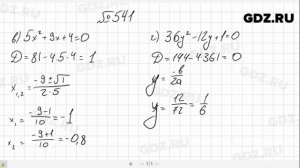 GDZ.RU
№541
в) 5x² + 9x + 4 = 0
D = 81 - 4·5·4 = 1
x₁,₂ = (-9 ± √1) / (2·5)
x₁ = (-9-1)/10 = -1
x₂ = (-9+1)/10 = -0,8
г) 36y² - 12y + 1 = 0
D = 144 - 4·36·1 = 0
y = -b/2a
y = 12/72 = 1/6
1/1
GDZ.RU